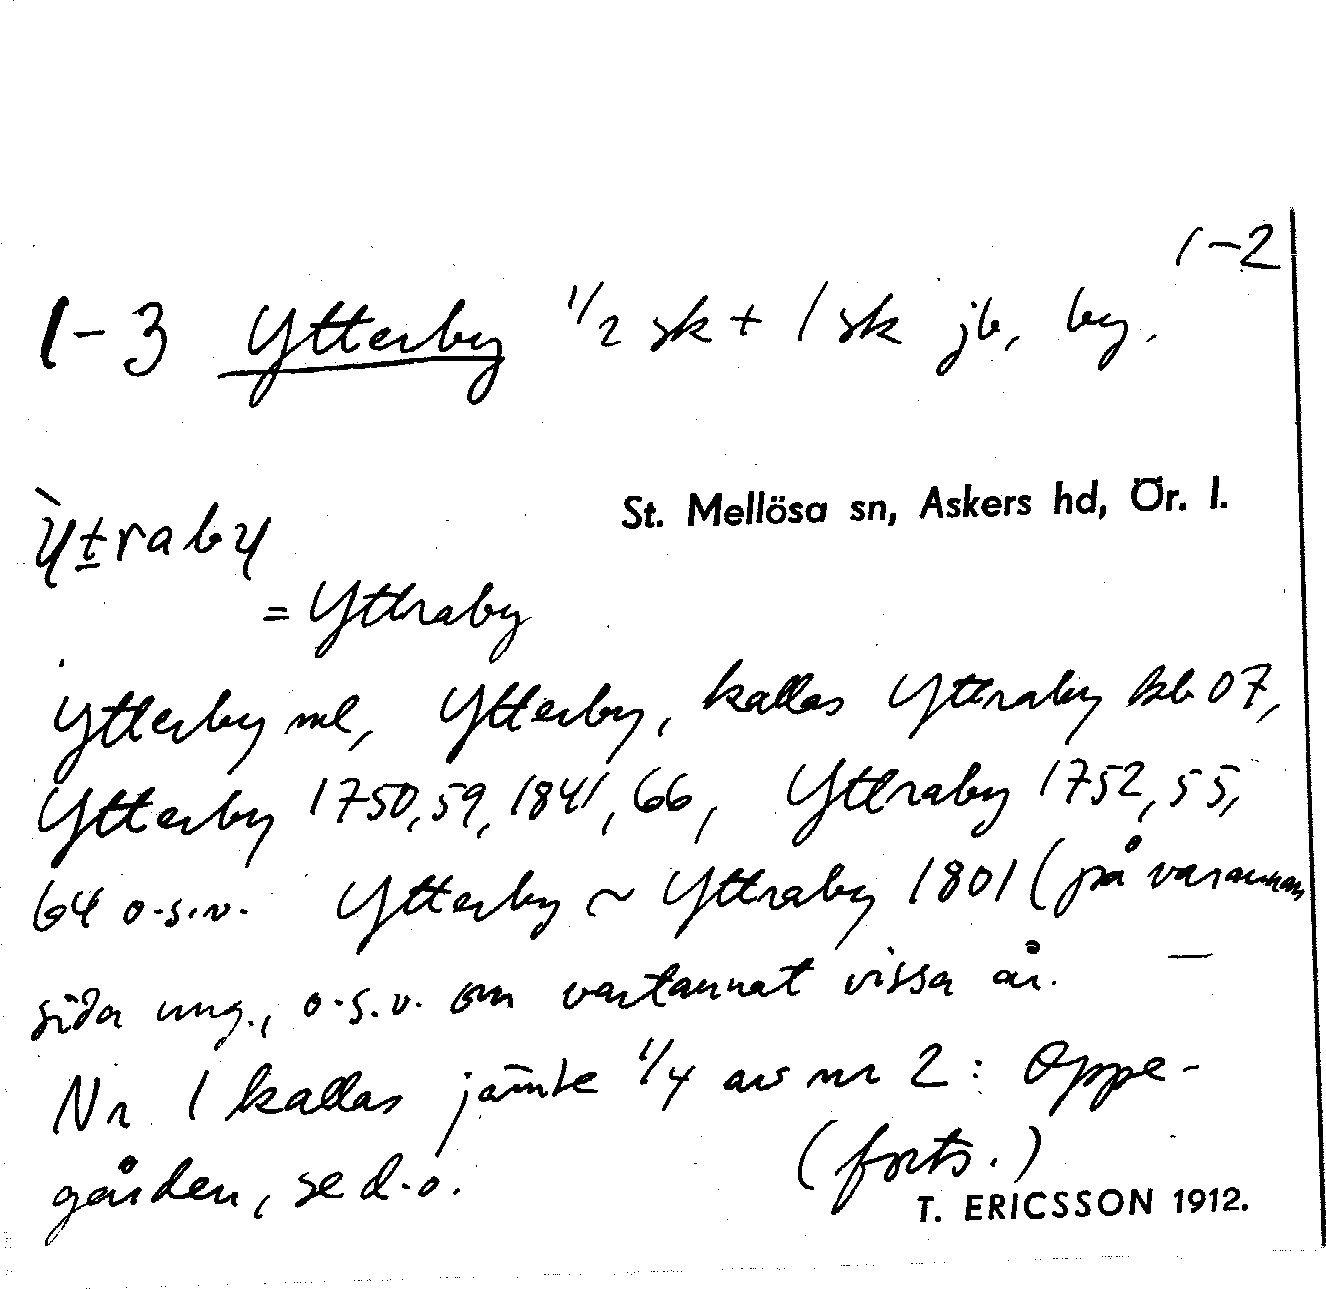 1-2
1-3 Ytterby 1/2 sk + 1 sk jb, by.
St. Mellösa sn, Askers hd, Ör. l.
ỳtraby
= Yttraby
Ytterby ml, Ytterby, kallas Yttraby kb 07,
Ytterby 1750, 59, 1841, 66, Yttraby 1752, 55,
64 o.s.v. Ytterby ~ Yttraby 1801 (på varannan
sida ung., o.s.v. om vartannat vissa år. —
Nr 1 kallas jämte 1/4 av nr 2: Oppe-
gården, se d.o. (forts.)
T. ERICSSON 1912.